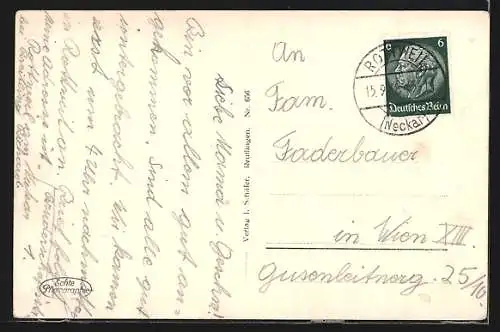 Liebe Mama u. Geschw.!
Bin vor allem gut an-
gekommen. Sind alle gut
untergebracht. Wir kamen
erst um 4 Uhr nachm.
in Rottweil an.
meine Adresse ist.
Rottweil am Neckar
Verlag I. Schäfer, Reutlingen. Nr. 656
Echte Photographie
An
Fam.
Faderbauer
in Wien XIII.
Gusenleitnerg. 25/10
6
Deutsches Reich
ROTTWEIL
15.9
(Neckar)